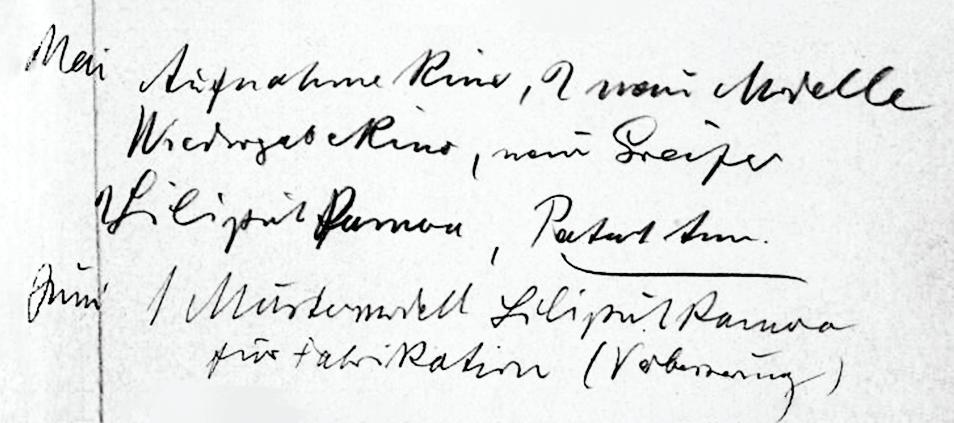 Mai Aufnahme Kino, 2 neue Modelle
Wiedergabe Kino, neuer Greifer
Liliput Kamera, Patent Anm.
Juni 1 Mustermodell Liliput Kamera
für Fabrikation (Verbesserung)